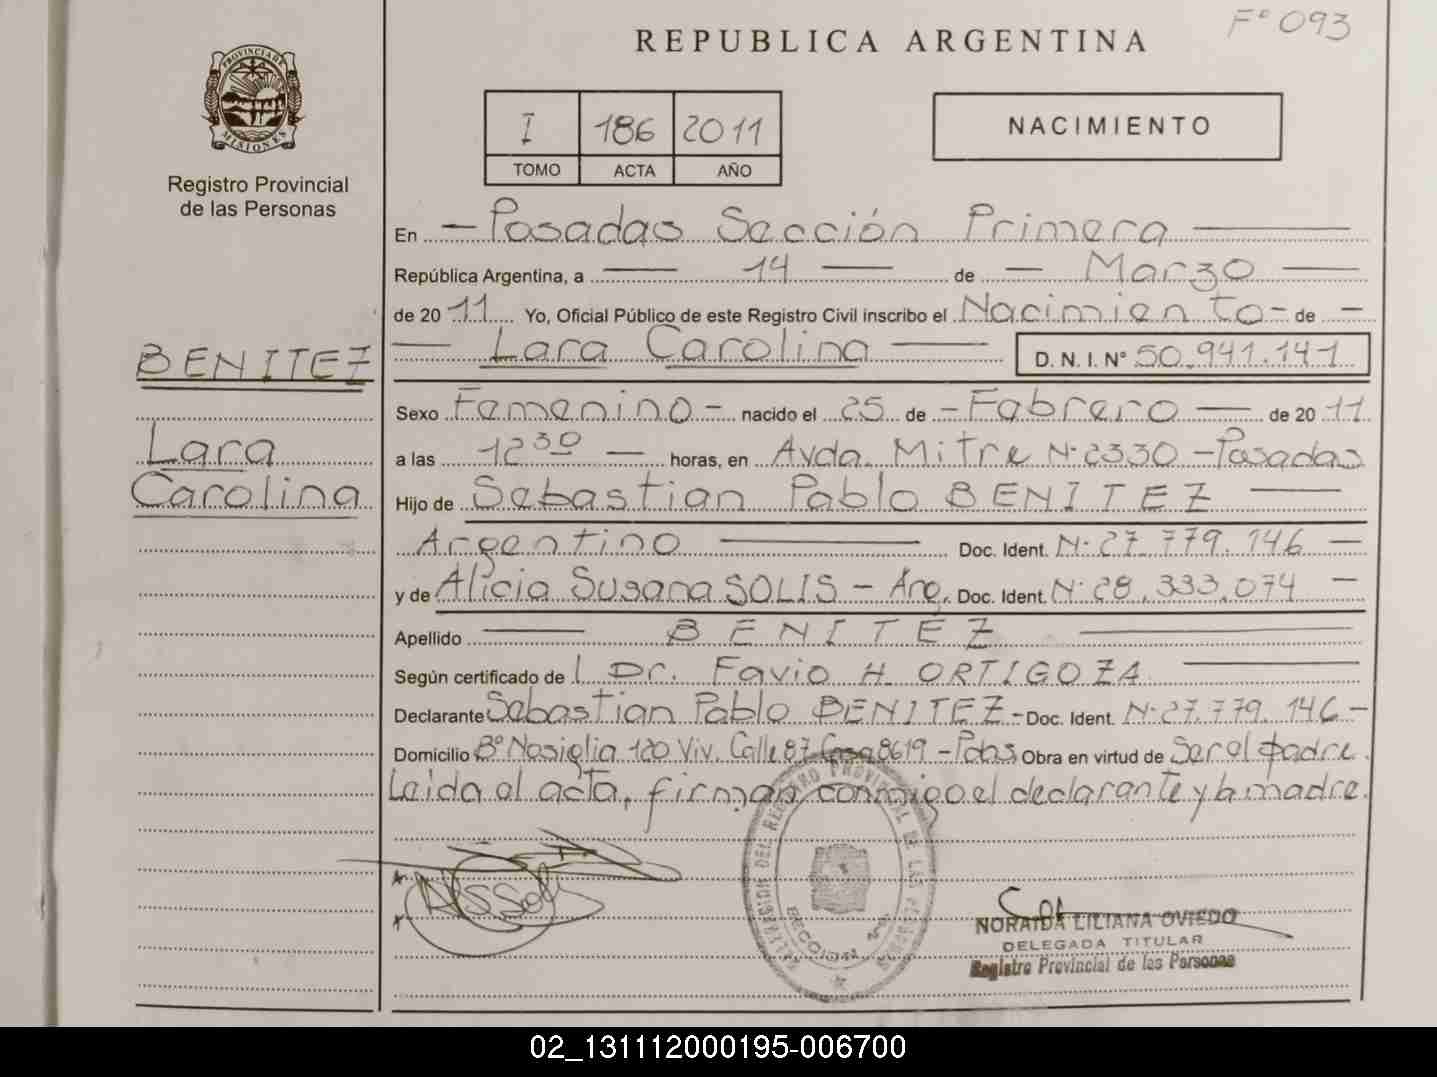 F° 093
REPUBLICA ARGENTINA
PROVINCIA DE MISIONES
Registro Provincial
de las Personas
I 186 2011
TOMO ACTA AÑO
NACIMIENTO
En — Posadas Sección Primera —
República Argentina, a — 14 — de — Marzo —
de 20 11 Yo, Oficial Público de este Registro Civil inscribo el Nacimiento - de —
— Lara Carolina — D. N. I. N° 50.941.141
BENITEZ
Lara
Carolina
Sexo Femenino - nacido el 25 de - Febrero — de 20 11
a las 12 30 — horas, en Avda. Mitre N° 2330 - Posadas
Hijo de Sebastian Pablo BENITEZ —
Argentino — Doc. Ident. N° 27.779.146 —
y de Alicia Susana SOLIS - Arg. Doc. Ident. N° 28.333.074 —
Apellido — BENITEZ —
Según certificado de l Dr. Favio H. ORTIGOZA —
Declarante Sebastian Pablo BENITEZ - Doc. Ident. N° 27.779.146 -
Domicilio B° Nosiglia 120 Viv. Calle 87 Casa 8619 - Pdas Obra en virtud de Ser el padre.
Leida el acta, firman conmigo el declarante y la madre.
REGISTRO PROVINCIAL DE LAS PERSONAS
NORAIDA LILIANA OVIEDO
DELEGADA TITULAR
Registro Provincial de las Personas
02_131112000195-006700